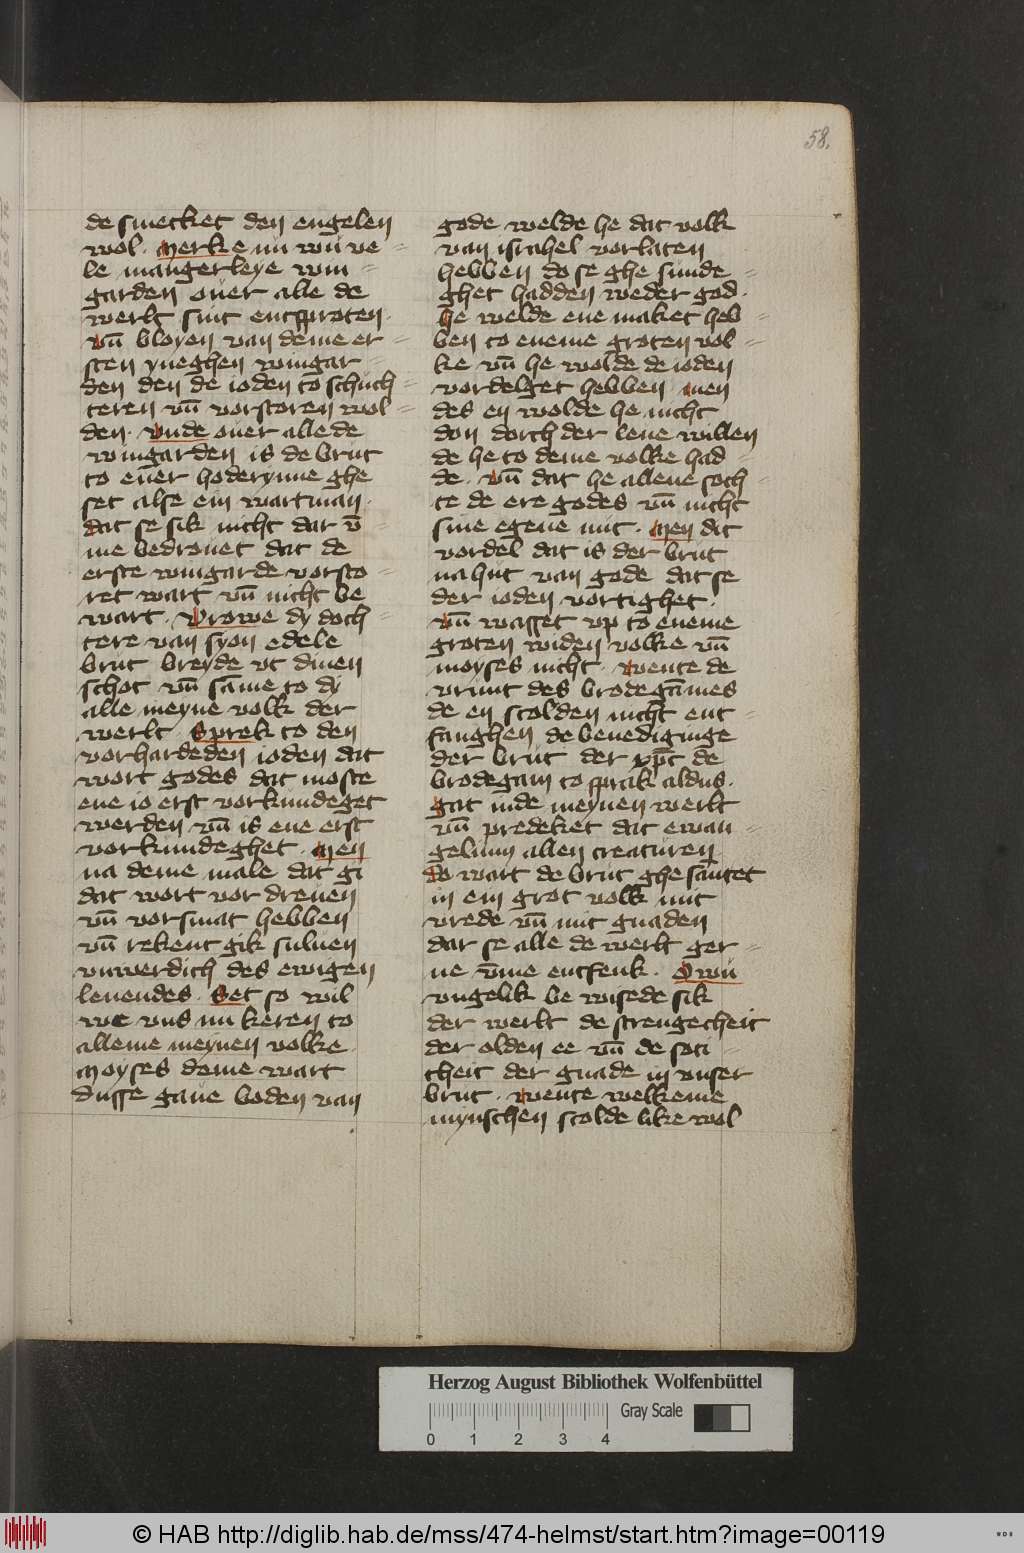 58.
de smecket den engelen
wol. Merke nu wu ve=
le mangerleye win=
garden ouer alle de
werlt sint entsproten.
vn̄ bloyen van deme er=
sten yneghen wingar=
den den de ioden to schuch=
teren vn̄ vorstoren wol=
den. Vnde ouer alle de
wingarden is de brut
to ener hoderynne ghe
set alse ein wartman.
dat se sik nicht dar v̄=
me bedrouet dat de
erste wingarde vorsto=
ret wart vn̄ nicht be
wart. Vrowe dy doch=
tere van syon edele
brut breyde vt dinen
schot vn̄ sāme to dy
alle meyne volk der
werlt Sprek to den
vorhardeden ioden dat
wort godes dat moste
eue io erst vorkundeget
werden vn̄ is eue erst
vorkundeghet. Men
na deme male dat gi
dat wort vor dreuen
vn̄ vorsmat hebben
vn̄ rekent gik suluen
vnwerdich des ewigen
leuendes. Set so wil
we vns nu keren to
alleme meynen volke.
Moyses deme wart
dusse gaue boden van
gode welde he dat volk
van israhel vorlaten
hebben do se ghe sunde=
ghet hadden weder god.
he welde ene maket heb=
ben to eneme groten vol=
ke vn̄ he wolde de ioden
vordelget hebben men
des en wolde he nicht
don dorch der leue willen
de he to deme volke had=
de. vn̄ dat he allene soch=
te de ere godes vn̄ nicht
sine egene nut. Men dit
vordel dat is der brut
na hut van gode dat se
der ioden vortighet.
vn̄ wasset vp to eneme
groten widen volke vn̄
moyses nicht. wente de
vrunt des brodegāmes
de en scolden nicht ent=
fanghen de benediginge
der brut der xp̄c de
brodegam to sprak aldus.
gat inde meynen werlt
vn̄ predeket dat ewan=
gelium allen creaturen.
do wart de brut ghe santet
in ein grot volk mit
vrede vn̄ mit gnaden
dar se alle de werlt ger=
ne v̄me entfenk. O wu
vngelik be wisede sik
der werlt de strengecheit
der olden ee vn̄ de soti=
cheit der gnade in vnser
brut. wente welkeme
mynschen scolde like wol
Herzog August Bibliothek Wolfenbüttel
Gray Scale
0 1 2 3 4
© HAB http://diglib.hab.de/mss/474-helmst/start.htm?image=00119